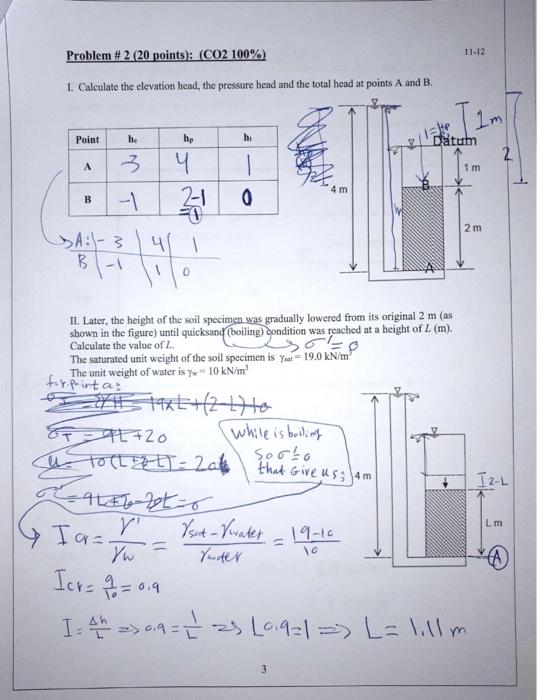 Problem # 2 (20 points): (CO2 100%)
11-12
I. Calculate the elevation head, the pressure head and the total head at points A and B.
Point he hp ht
A 3 4 1
B -1 2-1 0
=1
A: -3 4 1
B -1 1 0
1=hp
1m
Datum
2
1 m
B
4 m
2 m
A
II. Later, the height of the soil specimen was gradually lowered from its original 2 m (as
shown in the figure) until quicksand (boiling) condition was reached at a height of L (m).
Calculate the value of L.
σ'=0
The saturated unit weight of the soil specimen is γsat = 19.0 kN/m³
The unit weight of water is γw = 10 kN/m³
for Point a:
19xL+(2-L)10
σT = 9L+20
While is boiling
So σ'=0
that Give us;
4 m
2-L
L m
A
Icr = γ'/γw = γsat-γwater/γwater = 19-10/10
Icr = 9/10 = 0.9
I = Δh/L => 0.9 = 1/L => L0.9=1 => L= 1.11 m
3